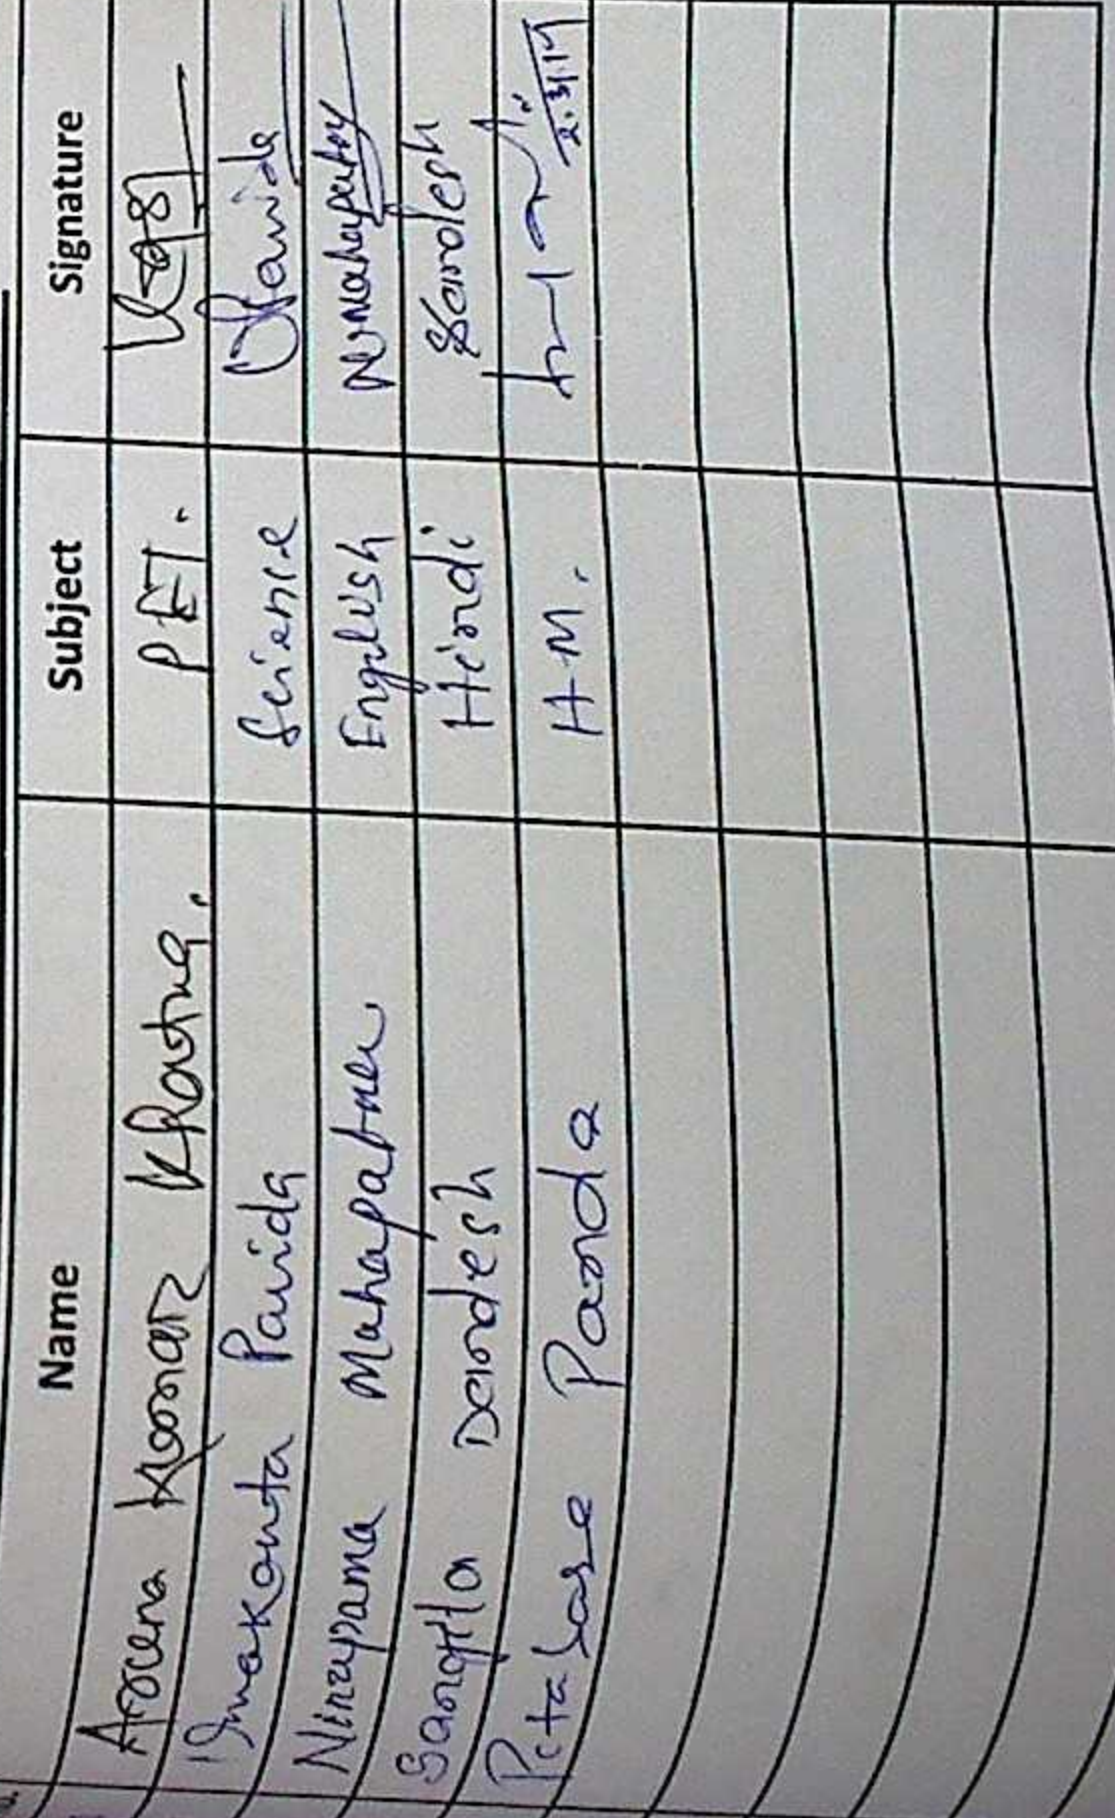 Name Subject Signature
Kumar Khatua. P.E.T.
Umakanta Parida Science Parida
Nirupama Mahapatra English NMahapatra
Sangita Dandesh Hindi Sandesh
Pitabase Panda H.M.